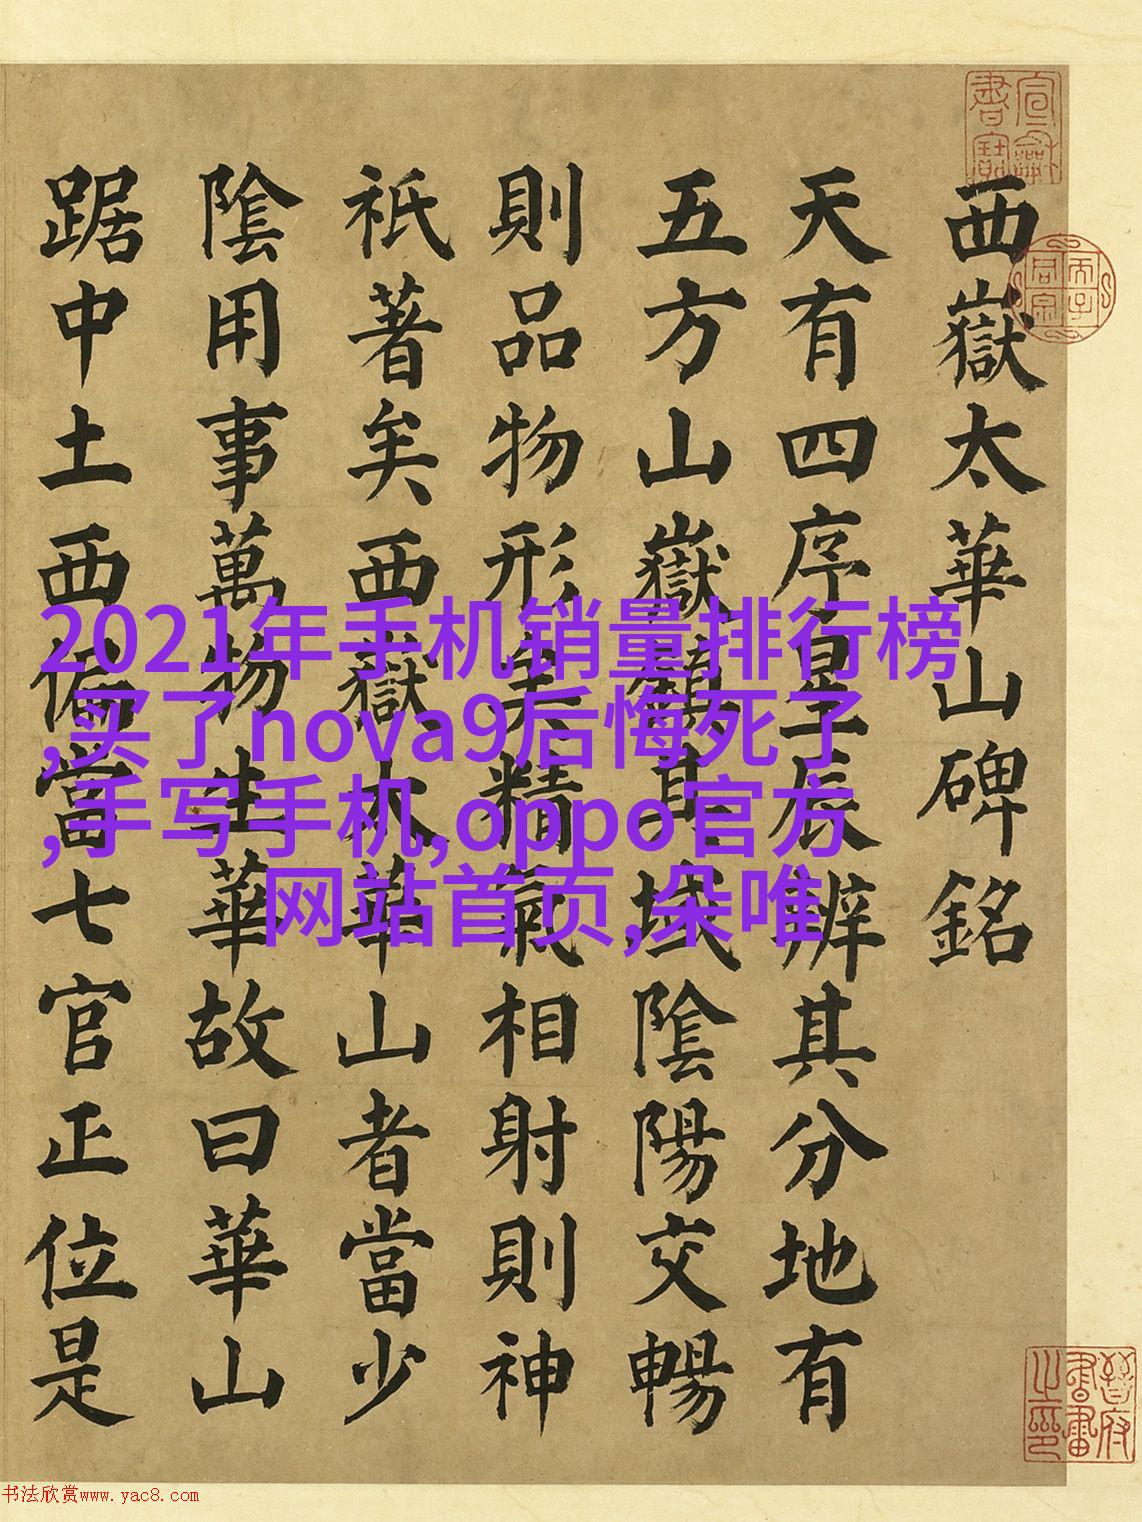 西嶽太華山碑銘
天有四序星辰辨其分地有
五方山嶽鎮其域陰陽交暢
則品物形矣精氣相射則神
祇著矣西嶽太華山者當少
陰用事萬物生華故曰華山
踞中土西偏當七官正位是
2021年手机销量排行榜
,买了nova9后悔死了
,手写手机,oppo官方
网站首页,朵唯
晉府書畫之印
书法欣赏www.yac8.com